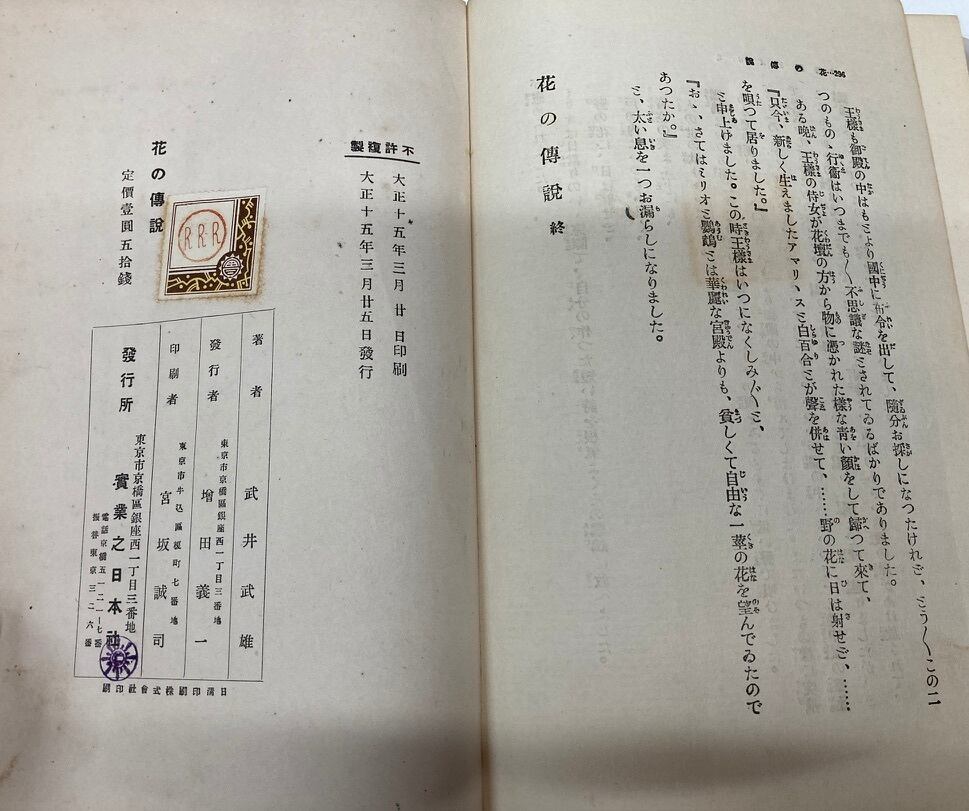 花の傳説…296
王樣も御殿の中はもとより國中に布令を出して、隨分お探しになつたけれど、とう〳〵この二
つのもの、行衞はいつまでも〳〵不思議な謎とされてゐるばかりでありました。
ある晩、王樣の侍女が花壇の方から物に憑かれた樣な青い顏をして歸つて來て、
『只今、新しく生えましたアマリ、スと白百合とが聲を併せて、……野の花に日は射せど、……
を唄つて居りました。』
と申上げました。この時王樣はいつになくしみ〴〵と、
『お、、さてはミリオと鸚鵡とは華麗な宮殿よりも、貧しくて自由な一莖の花を望んでゐたので
あつたか。』
と、太い息を一つお漏らしになりました。
花の傳説 終
不許複製
大正十五年三月廿日印刷
大正十五年三月廿五日發行
RRR
花の傳説
定價壹圓五拾錢
著者 武井武雄
東京市京橋區銀座西一丁目三番地
發行者 増田義一
東京市牛込區榎町七番地
印刷者 宮坂誠司
東京市京橋區銀座西一丁目三番地
發行所 實業之日本社
電話京橋五一二一―七番
振替東京三二六番
日清印刷株式會社印刷